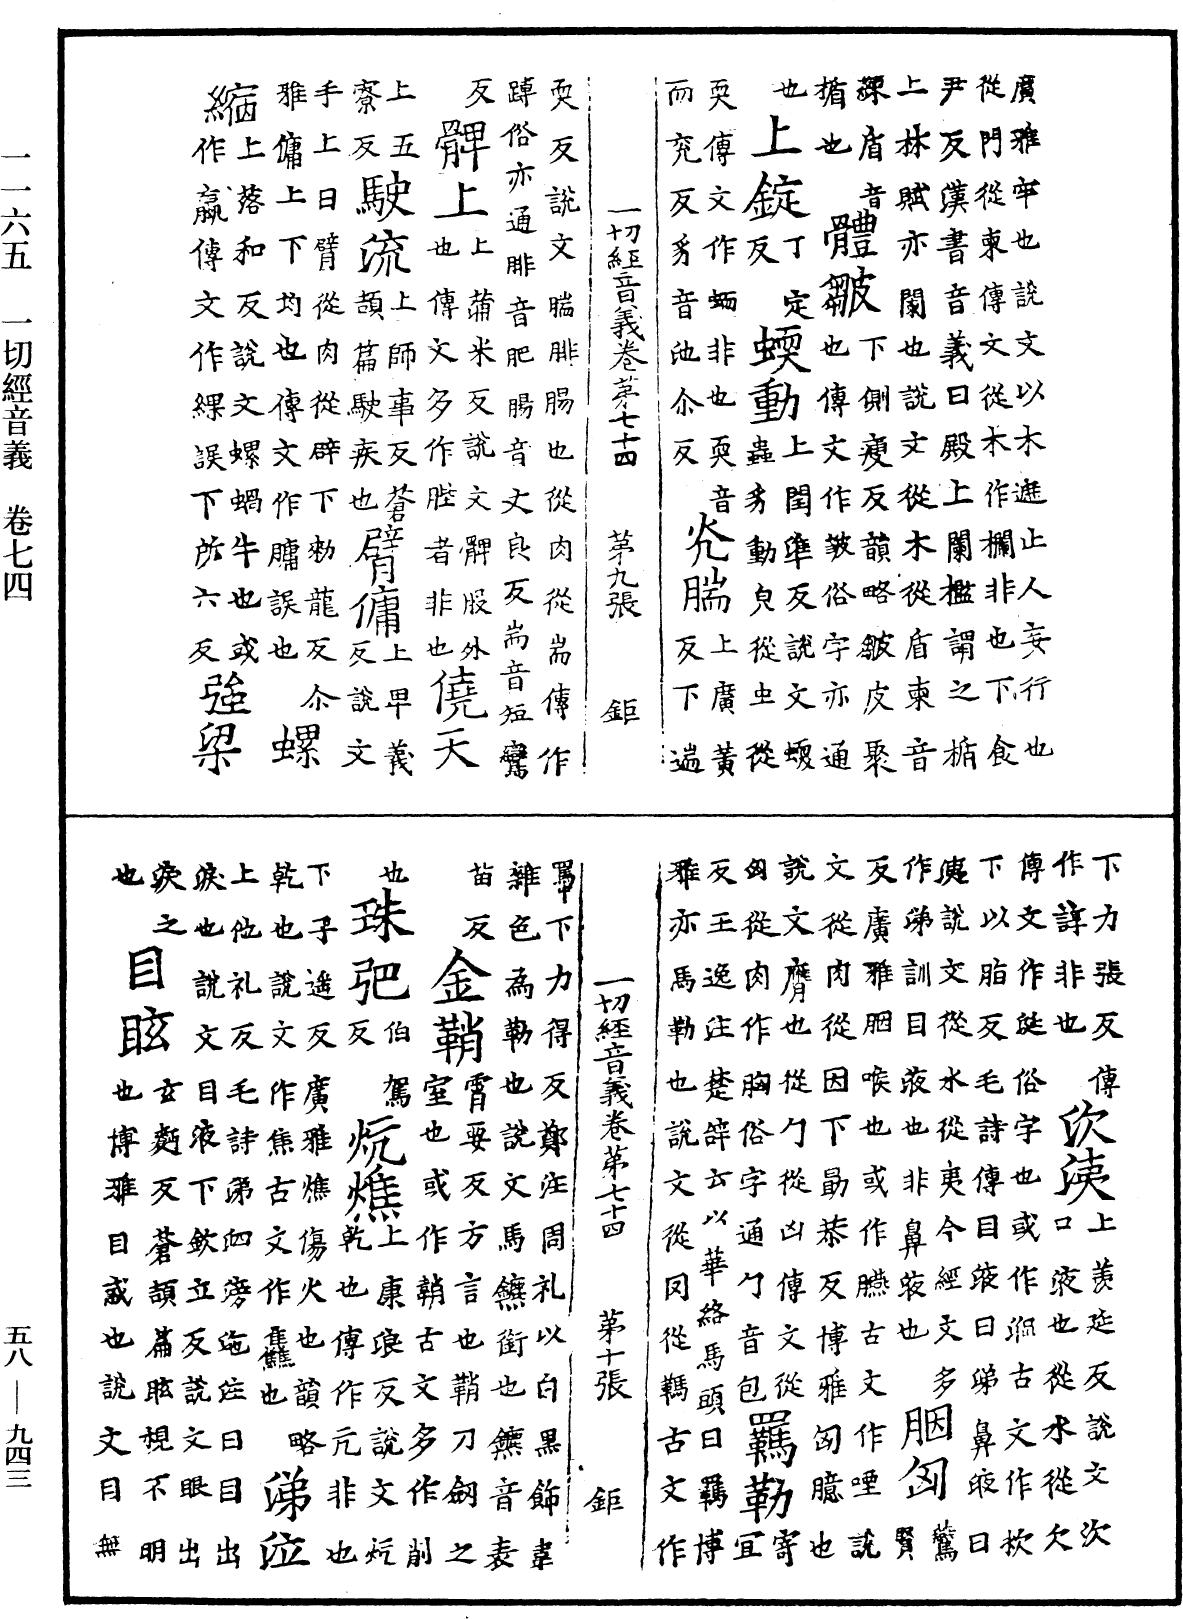 廣雅牢也說文以木進止人妄行也
從門從柬傳文從木作欄非也下食
尹反漢書音義曰殿上闌檻謂之楯
上林賦亦闌也說文從木從盾柬音
揀盾音
楯也
體皺下側瘦反韻略皺皮聚
也傳文作皱俗字亦通
也
上錠丁定反
蝡動上閏準反說文蝡
蟲豸動皃從虫從
耎傳文作蛃非也耎音
而兖反豸音池尒反
腨上廣黃
反下遄
一切經音義卷第七十四 第九張 鉅
耎反說文腨腓腸也從肉從耑傳作
䠂俗亦通腓音肥腸音丈良反耑音短鸞
反
髀上上蒲米反說文髀股外
也傳文多作䏶者非也
僥天
上五
寮反
駛流上師事反蒼
頡篇駛疾也
臂傭上卑義
反說文
手上曰臂從肉從辟下勑龍反尒
雅傭上下均也傳文作𦟛誤也
螺
縮上落和反說文螺蝸牛也或
作蠃傳文作縲誤下所六反
強梁
下力張反傳
作諒非也
次洟上羡延反說文次
口液也從水從欠
傳文作涎俗字也或作㳄古文作㳄
下以脂反毛詩傳目液曰涕鼻液曰
洟說文從水從夷今經文多
作涕訓目液也非鼻液也
胭匈鷰賢
反廣雅胭喉也或作臙古文作㖶說
文從肉從因下勗恭反博雅匈臆也
說文膺也從勹從凶傳文從
匈從肉作胸俗字通勹音包
羈勒寄宜
反王逸注楚辞云以革絡馬頭曰羈博
雅亦馬勒也說文從罔從䩭古文作
一切經音義卷第七十四 第十張 鉅
𩏇下力得反鄭注周礼以白黑飾韋
雜色為勒也說文馬鑣銜也鑣音表
苗反
金鞘霄要反方言也鞘刀劒之
室也或作鞘古文多作削
也
珠弝伯駕反
炕燋上康浪反說文炕
乾也傳作元非也
下子遥反廣雅燋傷火也韻略
乾也說文作焦古文作𤓪也
涕泣
上他礼反毛詩涕泗滂沱注曰目出
淚也說文目液下欽立反說文眼出
淚之
也
目眩玄麪反蒼頡篇眩視不明
也博雅目惑也說文目無
一一六五 一切經音義 卷七四
五八—九四三